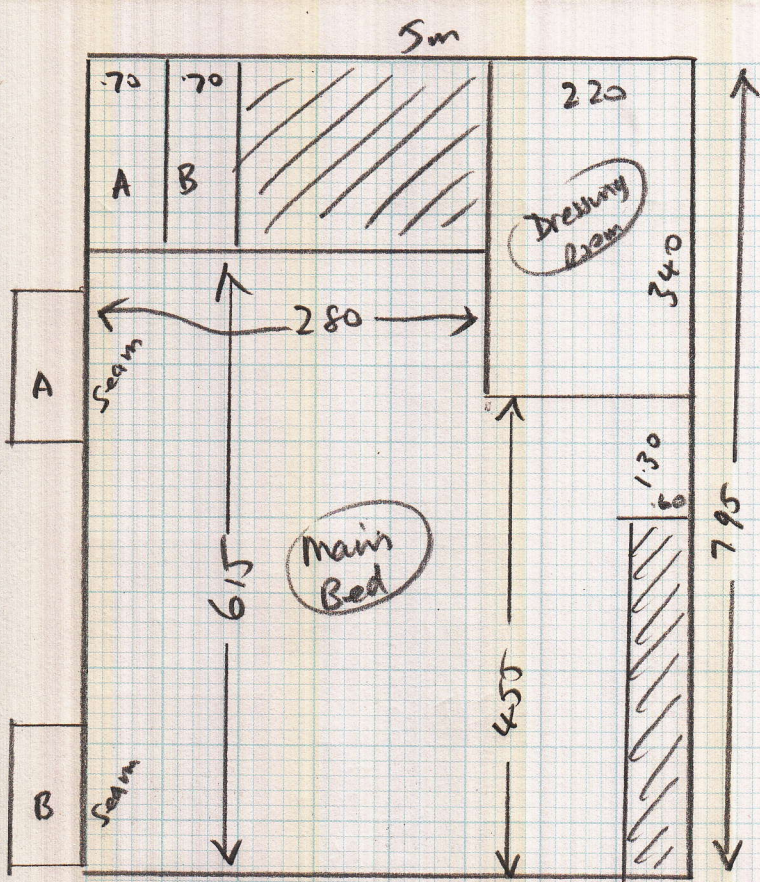 5m
.70
.70
220
A
B
Dressing
Room
340
280
A
Seam
1.30
.60
795
Main
Bed
615
455
B
Seam